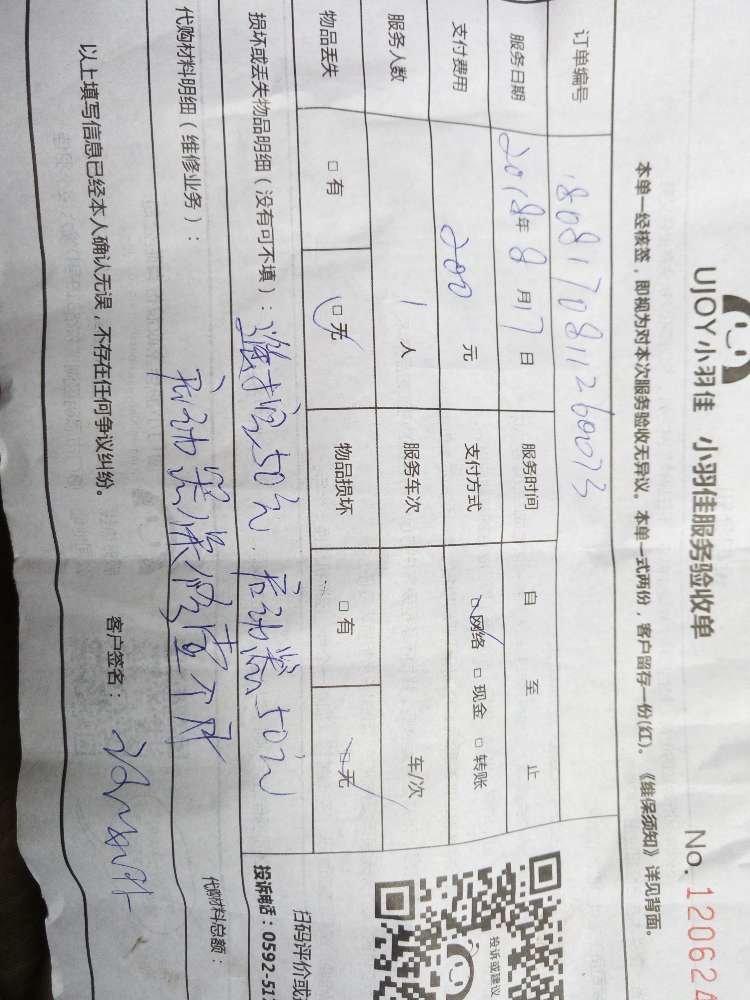 UJOY小羽佳 小羽佳服务验收单
No. 120624
本单一经核签，即视为对本次服务验收无异议。本单一式两份，客户留存一份(红)。《维保须知》详见背面。
订单编号 1808170811260073
服务日期 2018年 8 月 17 日 服务时间 自 至 止
支付费用 200 元 支付方式 □网络 □现金 □转账
服务人数 1 人 服务车次 车/次
物品丢失 □有 □无 物品损坏 □有 □无
损坏或丢失物品明细（没有可不填）： 50元 启动器50元
代购材料明细（维修业务）： 启动器
代购材料总额：
以上填写信息已经本人确认无误，不存在任何争议纠纷。
客户签名：
投诉或建议
扫码评价或
投诉电话：0592-51